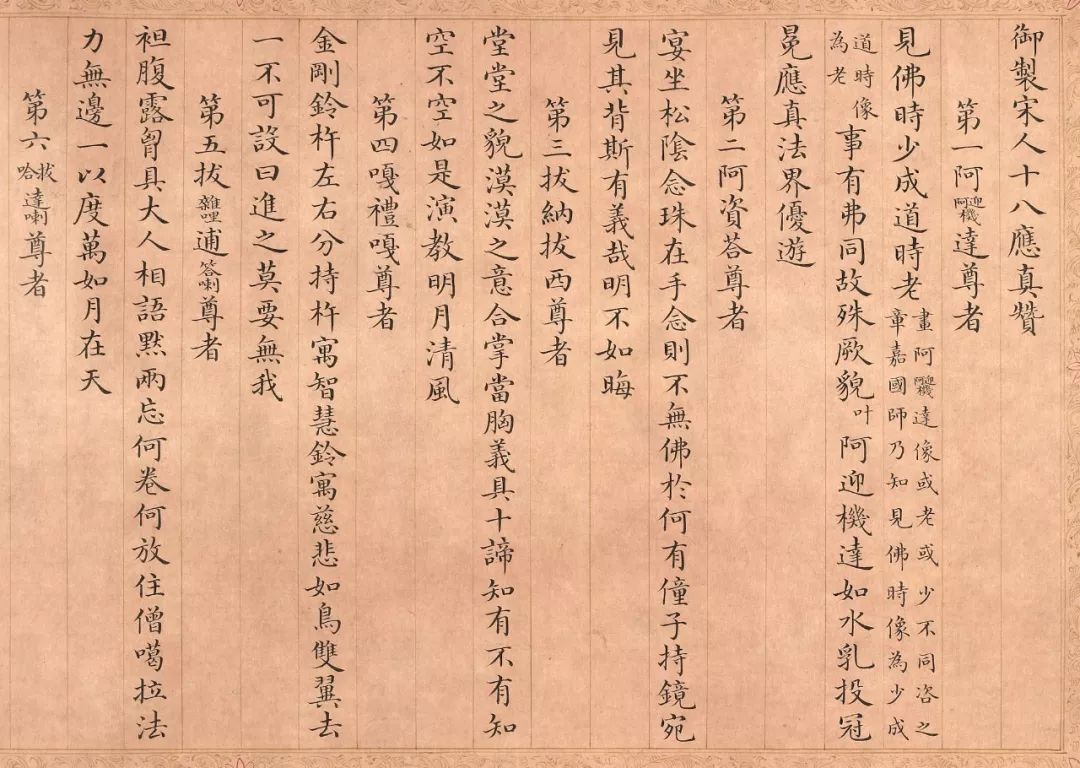 御製宋人十八應真贊
第一阿迎阿機達尊者
見佛時少成道時老畫阿迎阿機達像或老或少不同咨之
章嘉國師乃知見佛時像為少成
道時像
為老
事有弗同故殊厥貌叶阿迎機達如水乳投冠
冕應真法界優遊
第二阿資荅尊者
宴坐松陰念珠在手念則不無佛於何有僮子持鏡宛
見其背斯有義哉明不如晦
第三拔納拔西尊者
堂堂之貌漠漠之意合掌當胸義具十諦知有不有知
空不空如是演教明月清風
第四嘎禮嘎尊者
金剛鈴杵左右分持杵寓智慧鈴寓慈悲如鳥雙翼去
一不可設曰進之莫要無我
第五拔雜哩逋荅喇尊者
袒腹露胷具大人相語默兩忘何卷何放住僧噶拉法
力無邊一以度萬如月在天
第六拔哈達喇尊者